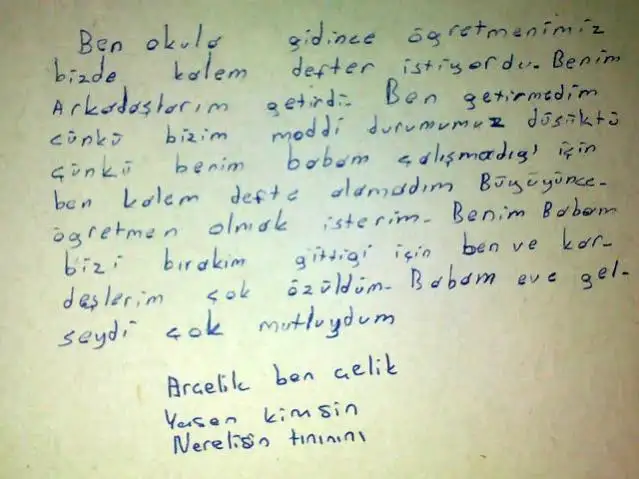 Ben okula gidince ögretmenimiz
bizde kalem defter istiyordu. Benim
Arkadaşlarım getirdi. Ben getirmedim
cünkü bizim moddi durumumuz düşüktü
çünkü benim babam çalışmadıgı için
ben kalem defte alamadım Büyüyünce.
ögretmen olmak isterim. Benim Babam
bizi bırakim gittigi için ben ve kar-
deşlerim çok özüldüm. Babam eve gel-
seydi çok mutluydum
Arcelik ben celik
Yasan kimsin
Nerelisin tınınını